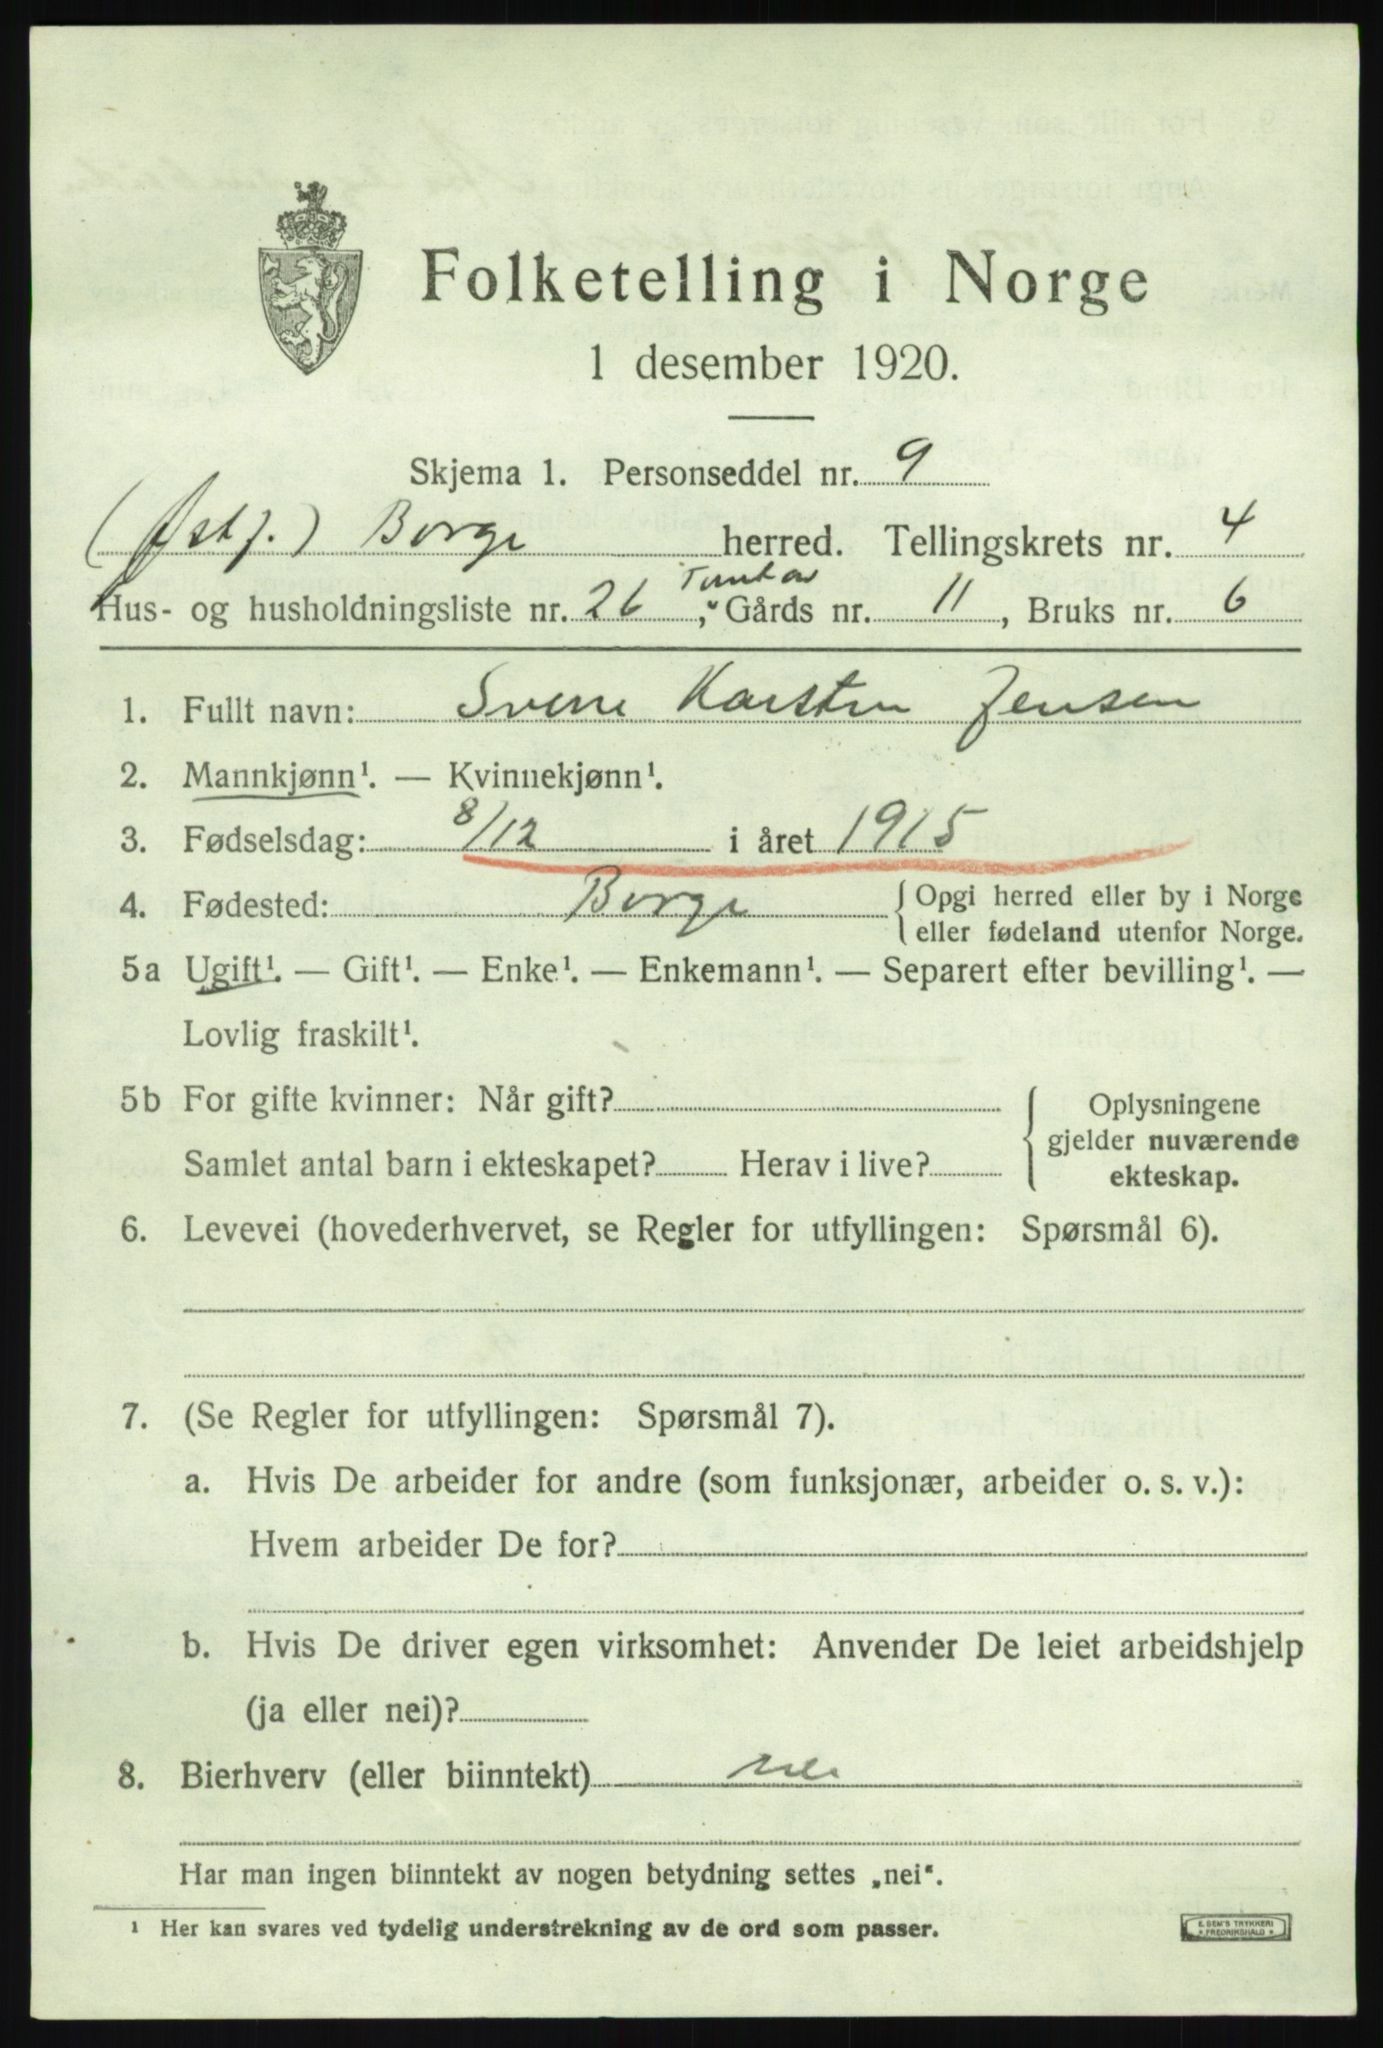 Folketelling i Norge
1 desember 1920.
Skjema 1. Personseddel nr. 9
(Østf.) Borge herred. Tellingskrets nr. 4
Tomt av
Hus- og husholdningsliste nr. 26, Gårds nr. 11, Bruks nr. 6
1. Fullt navn: Sverre Karsten Jensen
2. Mannkjønn¹. — Kvinnekjønn¹.
3. Fødselsdag: 8/12 i året 1915
4. Fødested: Borge { Opgi herred eller by i Norge
eller fødeland utenfor Norge.
5a Ugift¹. — Gift¹. — Enke¹. — Enkemann¹. — Separert efter bevilling¹. —
Lovlig fraskilt¹.
5b For gifte kvinner: Når gift?
Samlet antal barn i ekteskapet? Herav i live?
{ Oplysningene
gjelder nuværende
ekteskap.
6. Levevei (hovederhvervet, se Regler for utfyllingen: Spørsmål 6).
7. (Se Regler for utfyllingen: Spørsmål 7).
a. Hvis De arbeider for andre (som funksjonær, arbeider o. s. v.):
Hvem arbeider De for?
b. Hvis De driver egen virksomhet: Anvender De leiet arbeidshjelp
(ja eller nei)?
8. Bierhverv (eller biinntekt) nei
Har man ingen biinntekt av nogen betydning settes „nei“.
¹ Her kan svares ved tydelig understrekning av de ord som passer.
E. SEM'S TRYKKERI
* FREDRIKSHALD *